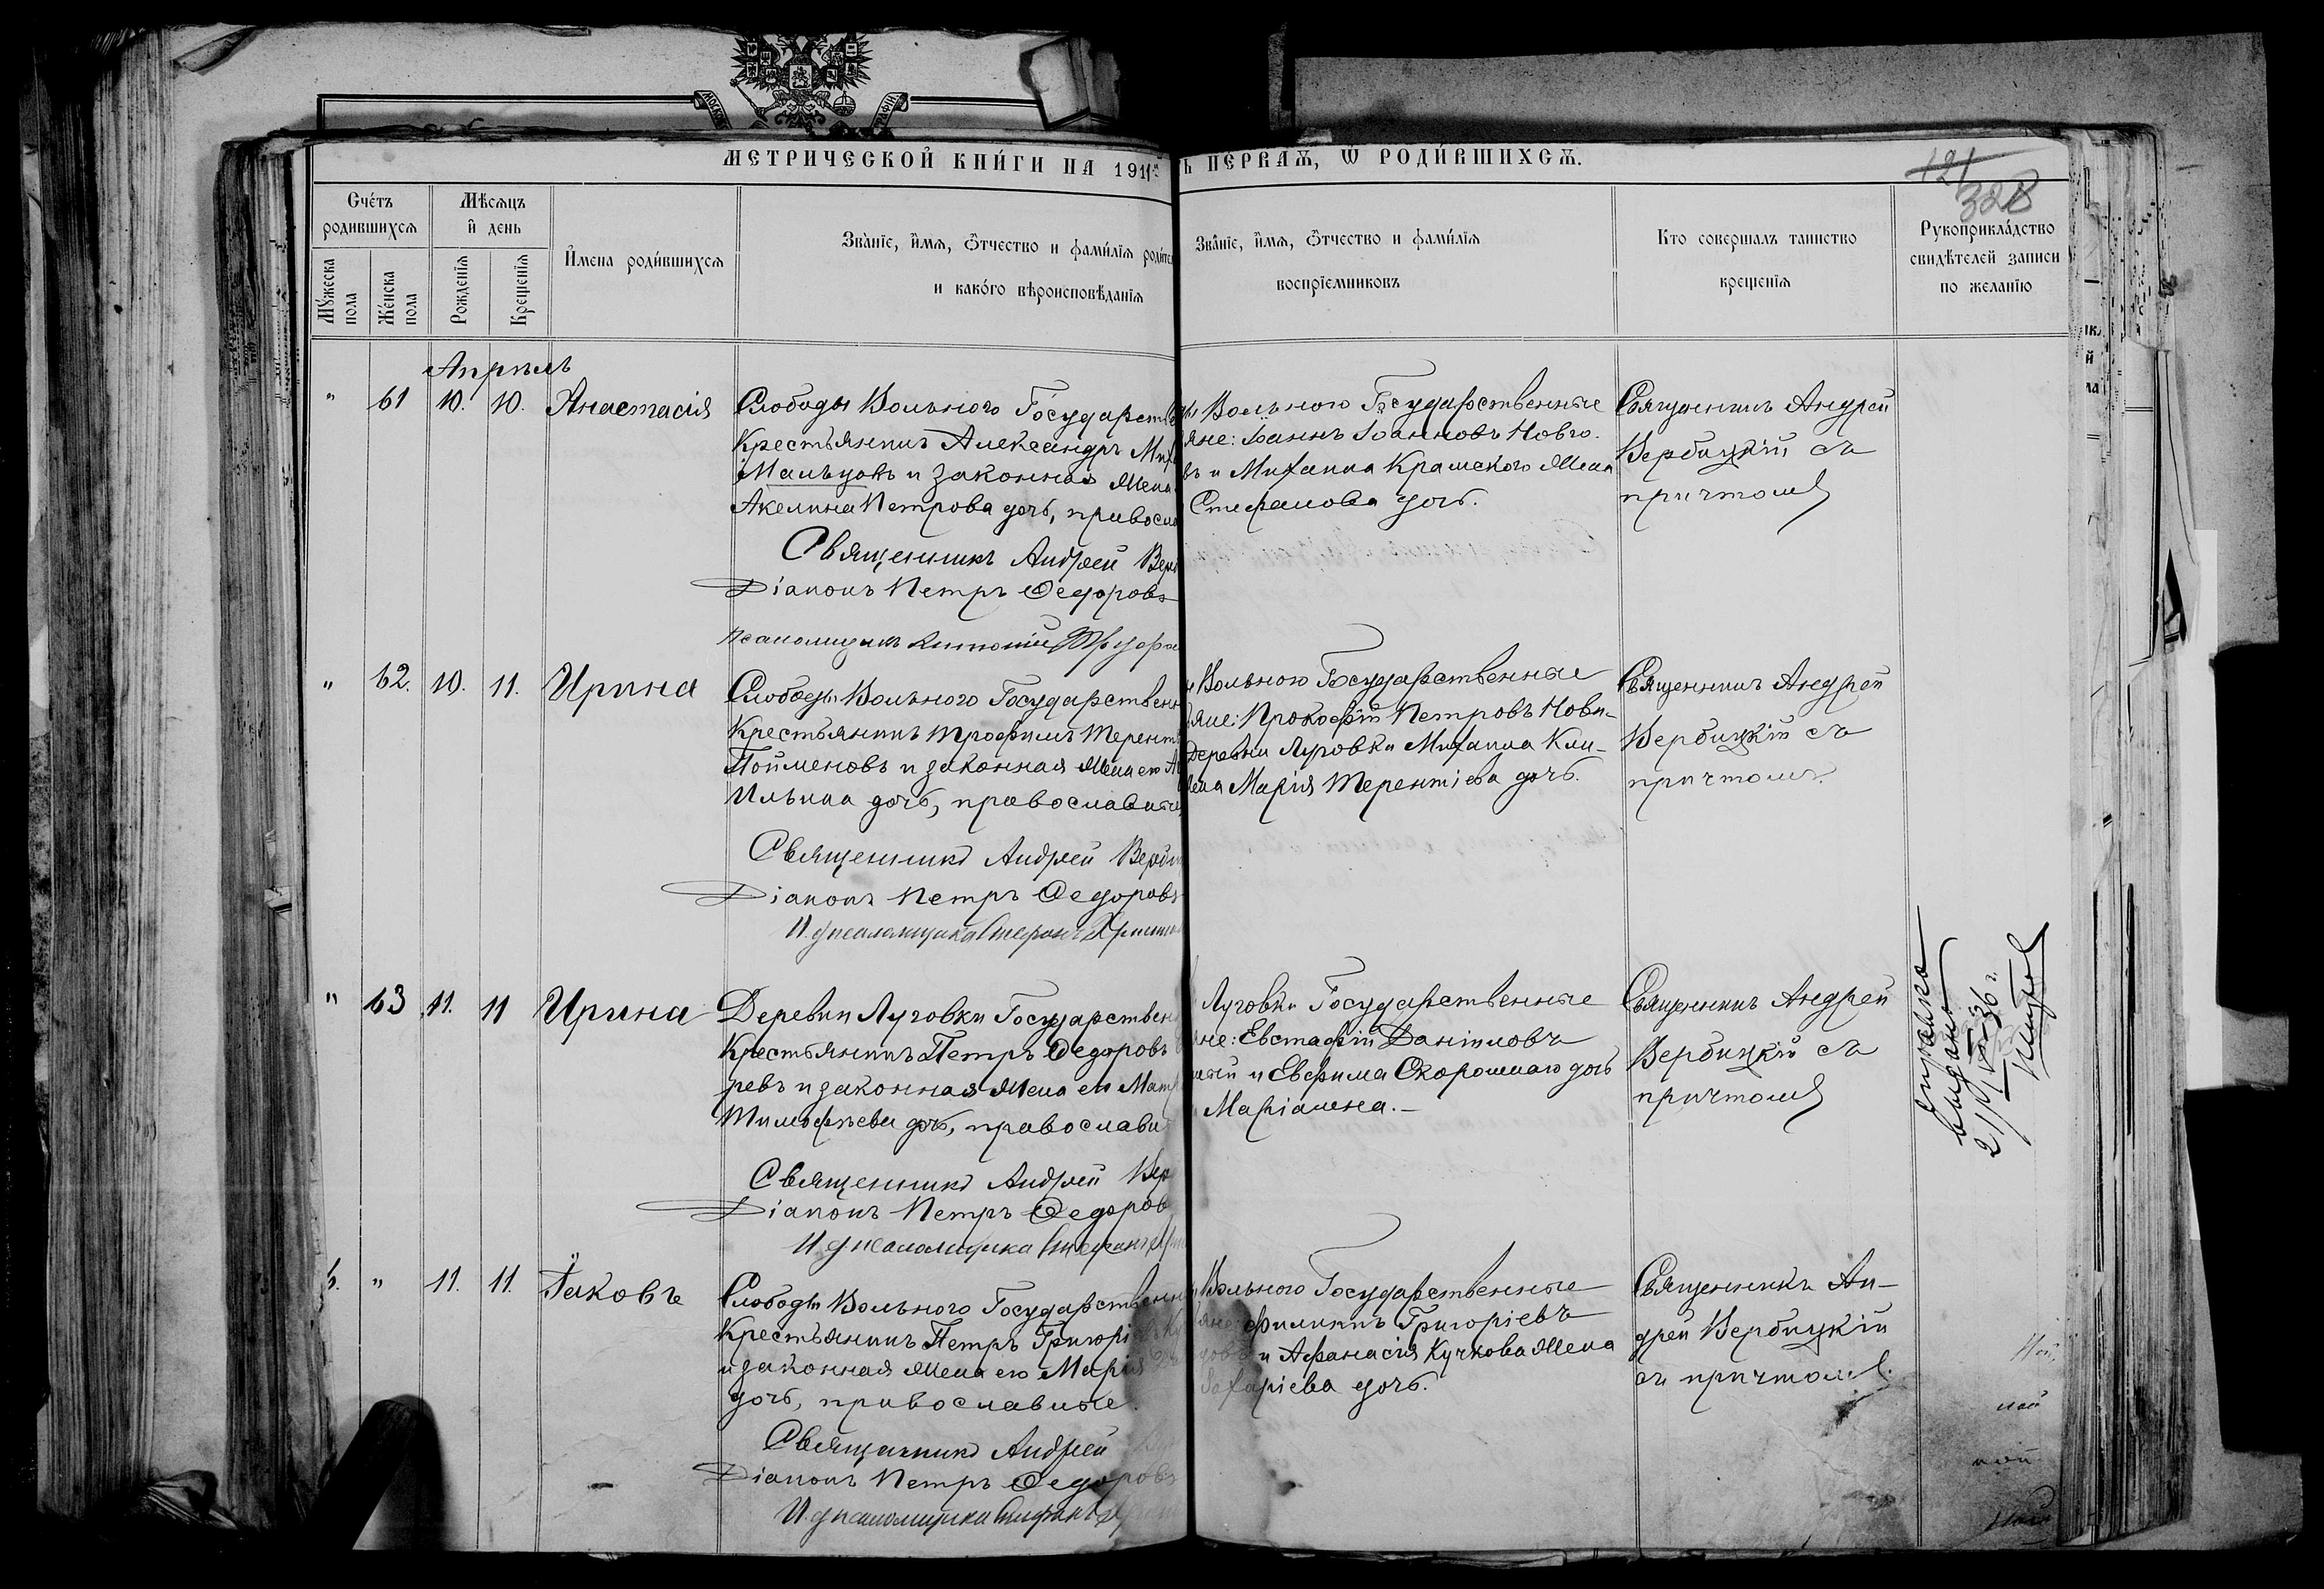 МЕТРИЧЕСКОЙ КНИ́ГИ НА 1911
ПЕ́РВАѦ, Ѡ РОДИ́ВШИХСѦ.
121
328
Сче́тъ родившихсѧ
Мѣсѧцъ и҆ день
Му́жеска пола
Же́нска пола
Рожденїѧ
Крещенїѧ
И҆мена роди́вшихсѧ
Зва́нїе, и҆́мѧ, ѻ҆́тчество и фами́лїѧ
и како́го вѣроисповѣ́данїѧ
Зва́нїе, и҆́мѧ, ѻ҆́тчество и фами́лїѧ
воспрїемниковъ
Кто совершалъ таинство
крещенїѧ
Рукоприкла́дство
свидѣтелей записи
по желанїю
Апрѣль
" 61 10. 10. Анастасія
Слободы Вольного Государстве
Крестьянинъ Александръ Мих
Мальцовъ и законная жена
Акелина Петрова дочь, правосла
Священникъ Андрей Верб
Діаконъ Петръ Ѳедоровъ
Псаломщикъ Антоній
Вольного Государственные
яне: Іоаннъ Іоанновъ Новго-
въ и Михаила Крамского жена
Стефанова дочь.
Священникъ Андрей
Вербицкій съ
причтомъ
" 62. 10. 11. Ирина
Слободы Вольного Государственн
Крестьянинъ Трофимъ Терент
Пойменовъ и законная жена его
Ильина дочь, православные
Священникъ Андрей Верби
Діаконъ Петръ Ѳедоровъ
И. д. псаломщика Стефанъ
Вольного Государственные
яне: Прокофій Петровъ Нови-
Деревни Луговки Михаила Кли-
жена Марія Терентіева дочь.
Священникъ Андрей
Вербицкій съ
причтомъ.
" 63 11. 11 Ирина
Деревни Луговки Государствен
Крестьянинъ Петръ Ѳедоровъ
ревъ и законная жена его Мат
Тимофѣева дочь, православн
Священникъ Андрей Вер
Діаконъ Петръ Ѳедоров
И. д. псаломщика Стефанъ
Луговки Государственные
яне: Евстафій Даніиловъ
и Евфима Скорошнаго дочь
Маріамна.
Священникъ Андрей
Вербицкій съ
причтомъ
справка
выдана
36 г.
" 11. 11. Іаковъ
Слободы Вольного Государственн
Крестьянинъ Петръ Григорі
и законная жена его Марія
дочь, православные.
Священникъ Андрей
Діаконъ Петръ Ѳедоровъ
И. д. псаломщика Стефанъ
Вольного Государственные
Филиппъ Григоріевъ
и Афанасія Кучкова жена
Захаріева дочь.
Священникъ Ан-
дрей Вербицкій
съ причтомъ.